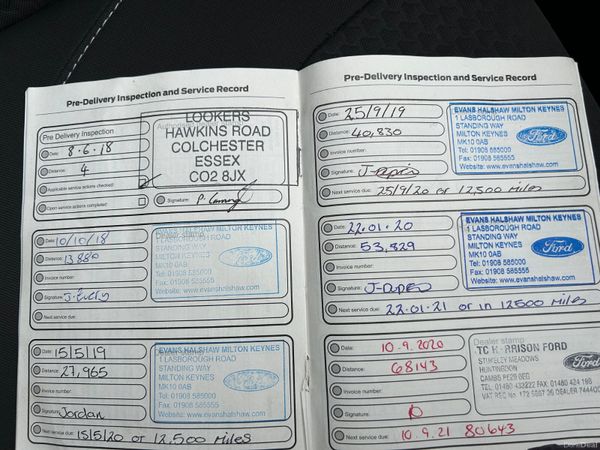 Pre-Delivery Inspection and Service Record
Pre Delivery Inspection
Date: 8.6.18
Distance: 4
Applicable service actions checked:
Open service actions completed:
LOOKERS
HAWKINS ROAD
COLCHESTER
ESSEX
CO2 8JX
Signature:
Date: 10/10/18
Distance: 13,880
Invoice number:
Signature:
Next service due:
Dealer stamp
EVANS HALSHAW MILTON KEYNES
1 LASBOROUGH ROAD
STANDING WAY
MILTON KEYNES
MK10 0AB
Tel: 01908 585000
Fax: 01908 585555
Website: www.evanshalshaw.com
Ford
Date: 15/5/19
Distance: 27,965
Invoice number:
Signature: Jordan
Next service due: 15/5/20 or 12,500 Miles
EVANS HALSHAW MILTON KEYNES
1 LASBOROUGH ROAD
STANDING WAY
MILTON KEYNES
MK10 0AB
Tel: 01908 585000
Fax: 01908 585555
Website: www.evanshalshaw.com
Ford
Pre-Delivery Inspection and Service Record
Date: 25/9/19
Distance: 40,830
Invoice number:
Signature:
Next service due: 25/9/20 or 12,500 Miles
EVANS HALSHAW MILTON KEYNES
1 LASBOROUGH ROAD
STANDING WAY
MILTON KEYNES
MK10 0AB
Tel: 01908 585000
Fax: 01908 585555
Website: www.evanshalshaw.com
Ford
Date: 22.01.20
Distance: 53,829
Invoice number:
Signature:
Next service due: 22.01.21 or in 12500 Miles
EVANS HALSHAW MILTON KEYNES
1 LASBOROUGH ROAD
STANDING WAY
MILTON KEYNES
MK10 0AB
Tel: 01908 585000
Fax: 01908 585555
Website: www.evanshalshaw.com
Ford
Date: 10.9.2020
Distance: 68143
Invoice number:
Signature:
Next service due: 10.9.21 80643
Dealer stamp
FORD
STUKELEY MEADOWS
HUNTINGDON
CAMBS PE29 6EG
Ford
DoneDeal